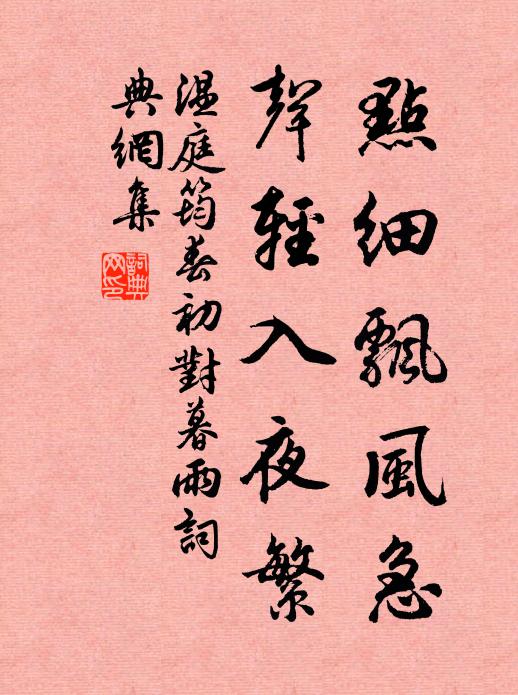 點細飄風急
聲輕入夜繁
溫庭筠春初對暮雨詞
典網集
詞典網印